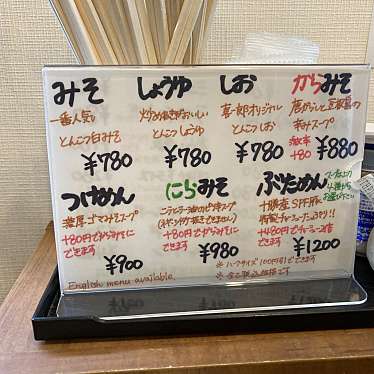 みそ
一番人気
とんこつ白みそ
¥780
しょうゆ
炒めねぎがおいしい
とんこつしょうゆ
¥780
しお
喜一郎オリジナル
とんこつしお
¥780
からみそ
唐がらしと
辛みスープ
激辛
+80
¥880
つけめん
濃厚ゴマみそスープ
+80円でからみそに
できます
¥900
にらみそ
ニラとラー油のピリ辛スープ
+80円でからみそに
できます
¥980
ぶためん
十勝産SPF豚
特製チャーシューたっぷり!!
¥1200
English menu available.
※ハーフサイズ(100円引)できます
※全て税込価格です